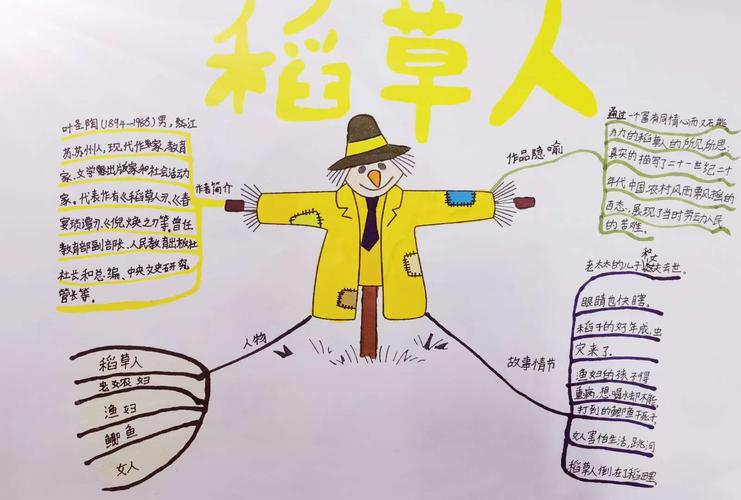 稻草人
叶圣陶(1894—1988)男,
苏苏州人,现代作家,教育
家、文学出版家和社会活动
家。代表作有《稻草人》、《
》《倪焕之》等。曾任
教育部副部长、人民教育出版社
社长和总编、中央文史研究
馆长等。
作者简介
作品隐喻
通过一个富有同情心而又无能
为力的稻草人的所见所思,
真实的描写了二十世纪二十
年代中国农村风雨飘摇的
百态,展现了当时劳动人民
的苦难。
人物
稻草人
老农妇
渔妇
鲫鱼
女人
故事情节
老太太的儿子和丈夫去世。
眼睛也快瞎。
稻子的好年成,虫
灾来了。
渔妇的孩子得
重病,想喝水却不能,
打到的鲫鱼死
女人害怕生活,跳河
稻草人倒在了稻田里